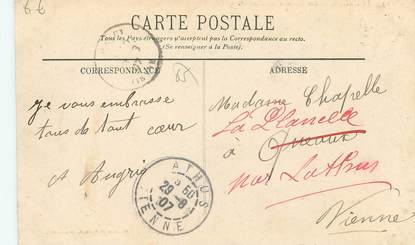 6-6
CARTE POSTALE
Tous les Pays étrangers n'acceptent pas la Correspondance au recto.
(Se renseigner à la Poste).
CORRESPONDANCE
ADRESSE
85
Je vous embrasse
tous de tout cœur
A Augris
Madame Chapelle
La Planelle
à Queaux
par Lathus
Vienne
LATHUS
29 -8
07
VIENNE